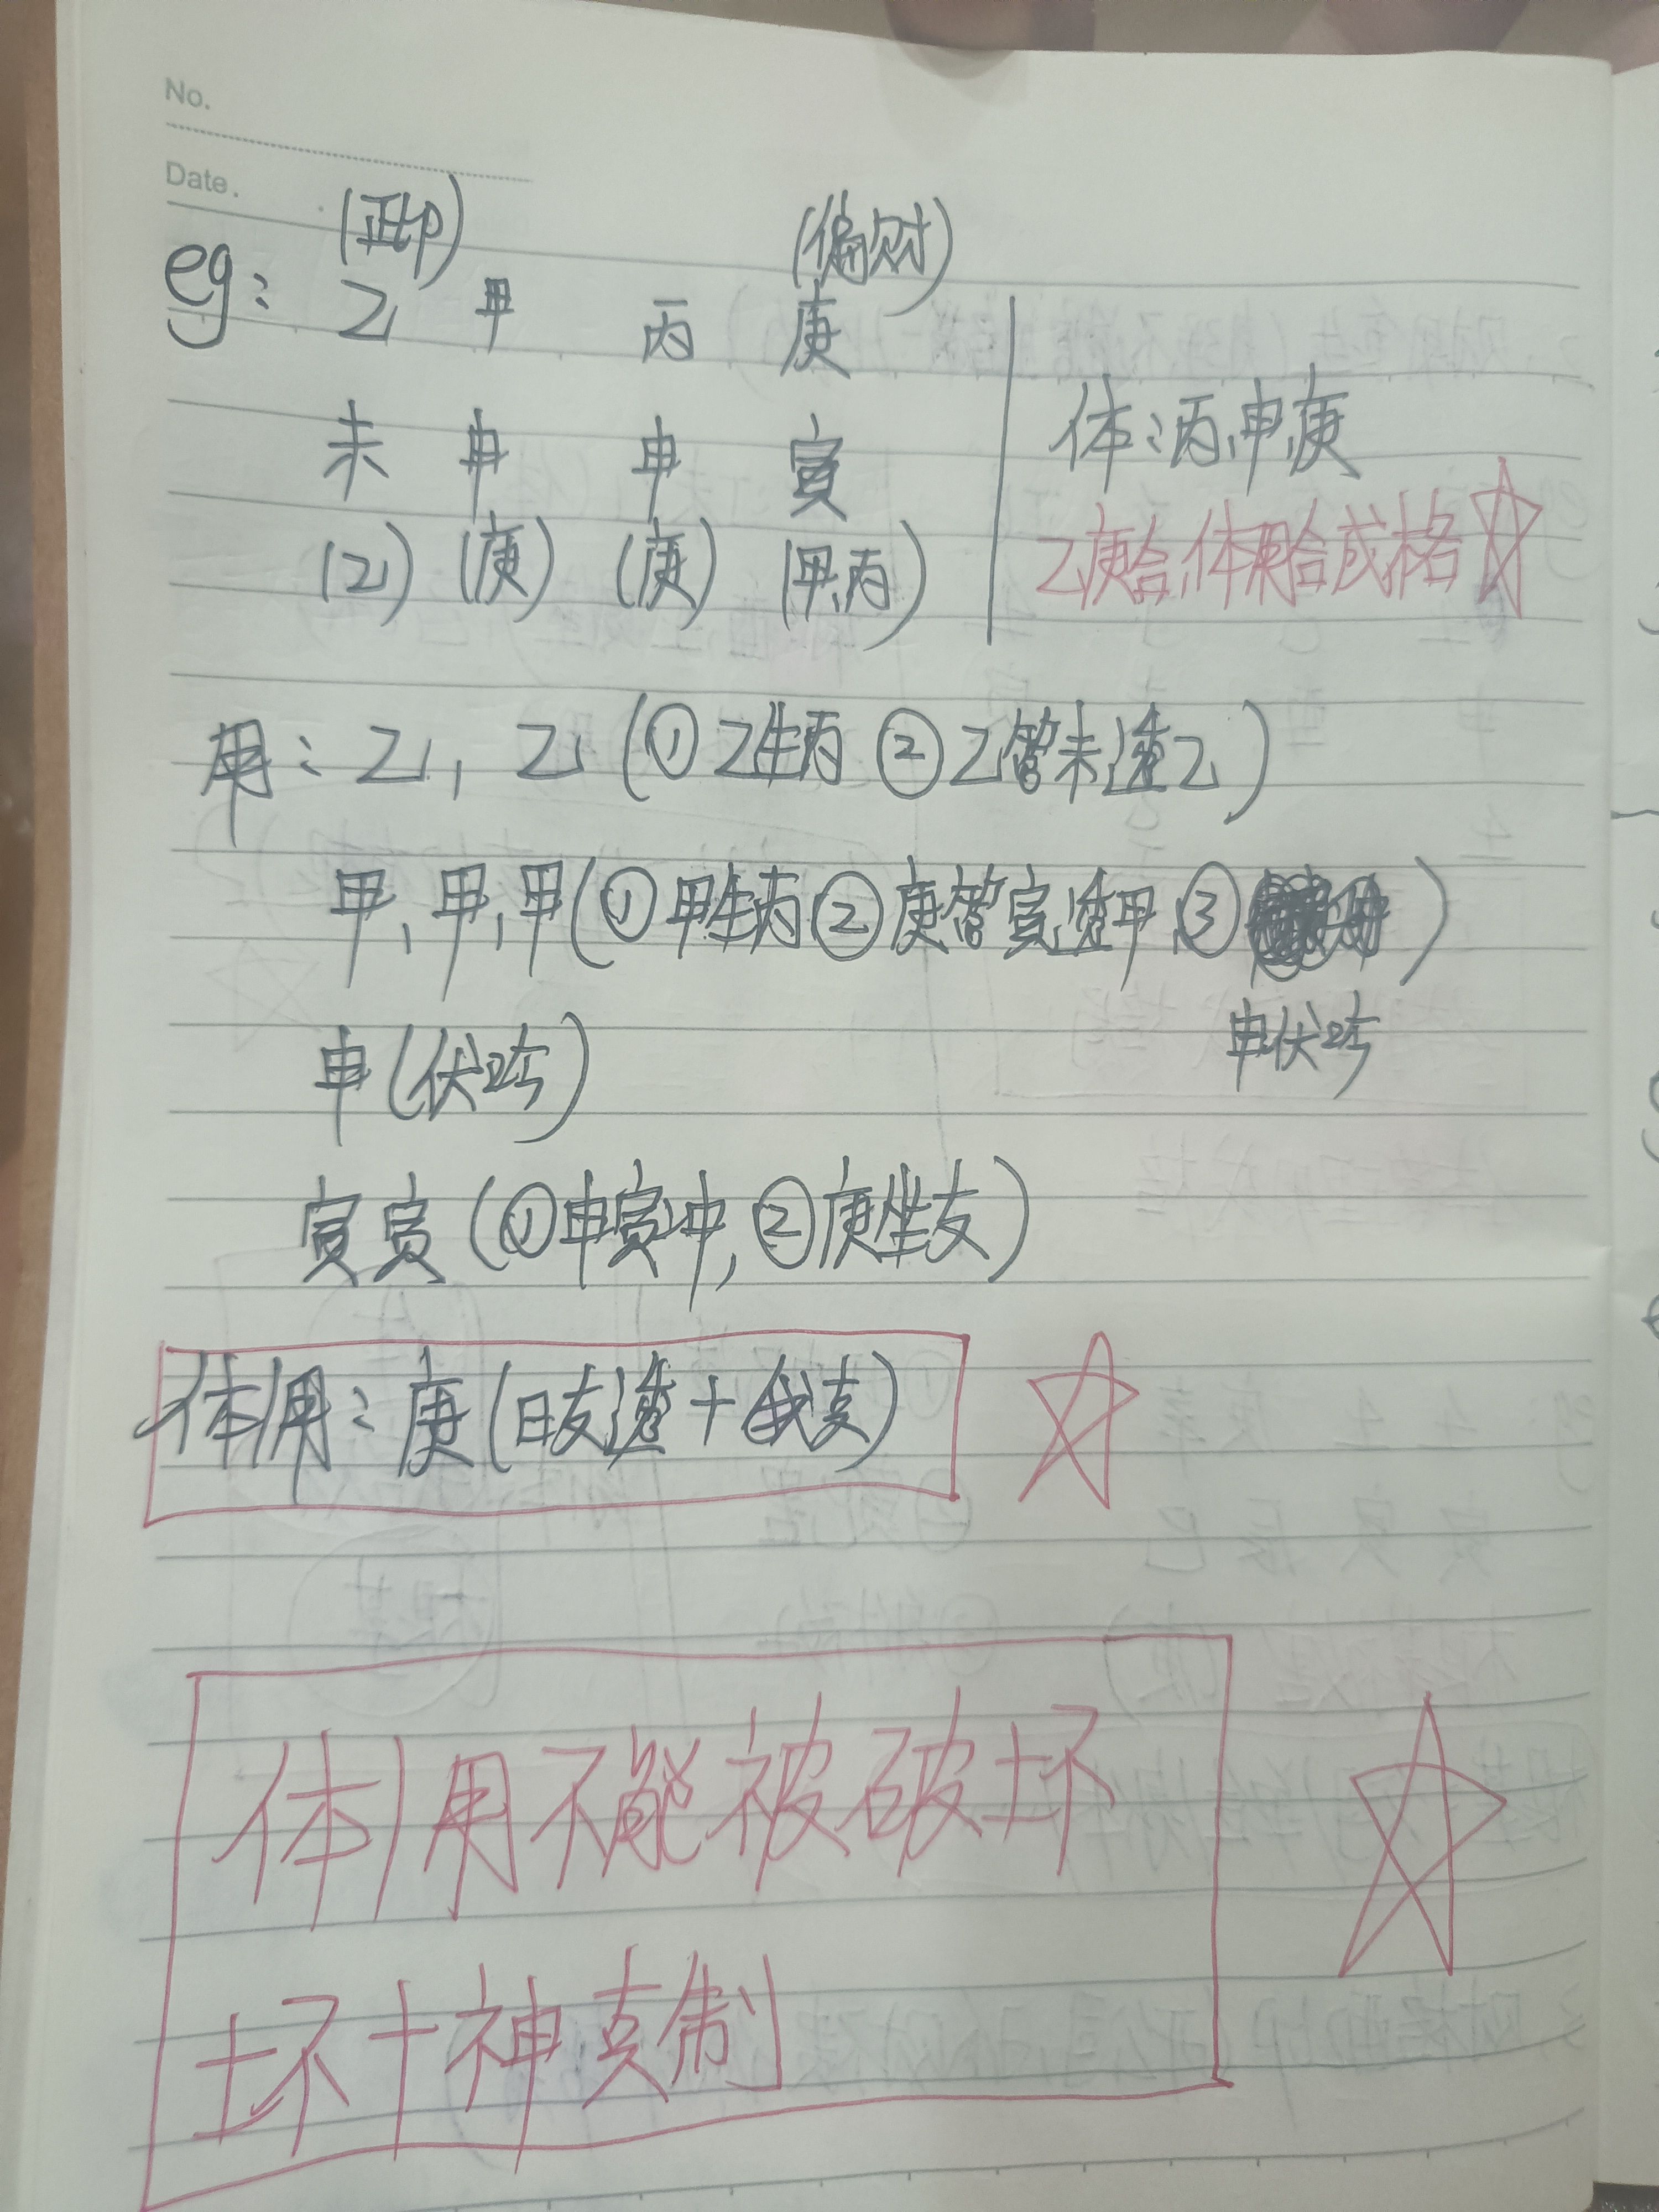 No.
Date.
(正印) (偏财)
eg: 乙 甲 丙 庚
未 申 申 寅
(乙) (庚) (庚) (甲、丙)
体:丙、申、庚
乙庚合,体用合成格
用:乙,乙(①乙生丙 ②乙管未透乙)
甲、甲、甲(①甲生丙②庚管寅透甲,③
申伏吟
申(伏吟)
寅寅(①申寅冲,②庚坐支)
体用:庚(日支透+自我支)
体用不能被破坏
坏十神克制